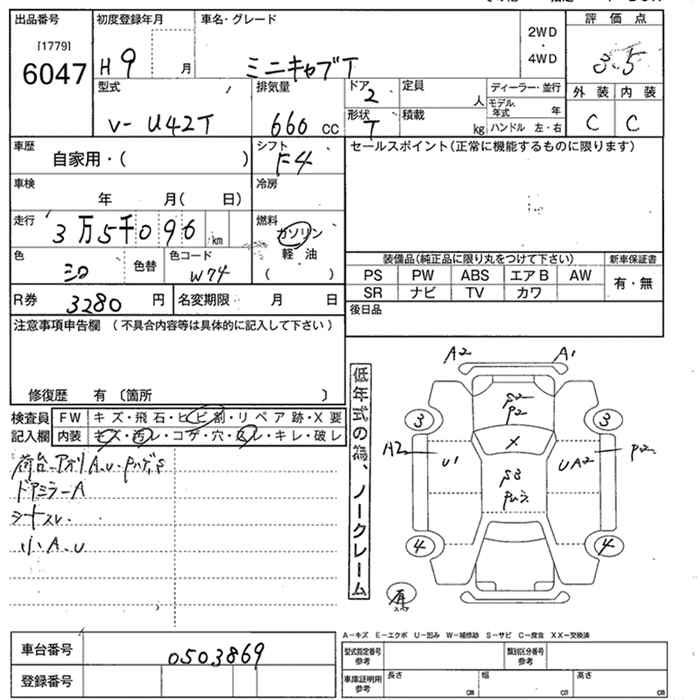 出品番号 初度登録年月 車名・グレード 評価点
［1779］
6047 H9 月 ミニキャブT 2WD・4WD 3.5
型式 排気量 ドア 定員 ディーラー・並行 外装 内装
V- U42T 660 cc 2 人 モデル年式 年 C C
形状 積載
T kg ハンドル 左・右
車歴 自家用・( ) シフト F4 セールスポイント(正常に機能するものに限ります)
車検 年 月( 日) 冷房
走行 3万5千096 km 燃料 ガソリン
軽油
( )
色 シロ 色替 色コード W74
装備品(純正品に限り丸をつけて下さい) 新車保証書
PS PW ABS エアB AW 有・無
SR ナビ TV カワ
R券 3280 円 名変期限 月 日
後日品
注意事項申告欄 (不具合内容等は具体的に記入して下さい)
修復歴 有〔箇所 〕
検査員 FW キズ・飛石・ヒビ割・リペア跡・X要
記入欄 内装 キズ・汚レ・コゲ・穴・スレ・キレ・破レ
荷台-アオリA.U.
ドアミラーA
シートスレ.
小A.U
低年式の為、ノークレーム
A2 A1
P2
3 3
X
A2 U1 UA2 P2
4 4
A-キズ E-エクボ U-凹み W-補修跡 S-サビ C-腐食 XX-交換済
車台番号 0503869
登録番号
型式指定番号 参考 類別区分番号 参考
車庫証明用 参考 長さ cm 幅 cm 高さ cm